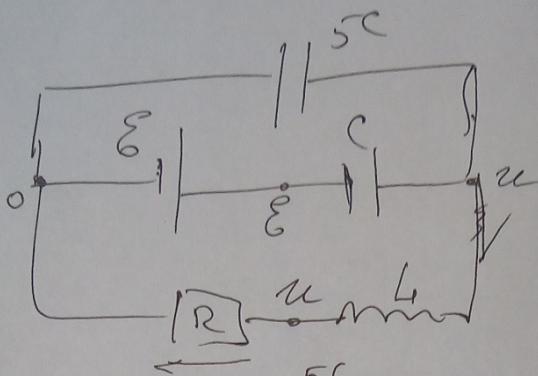 5C
ℰ C
0 ℰ u
R u L
5C